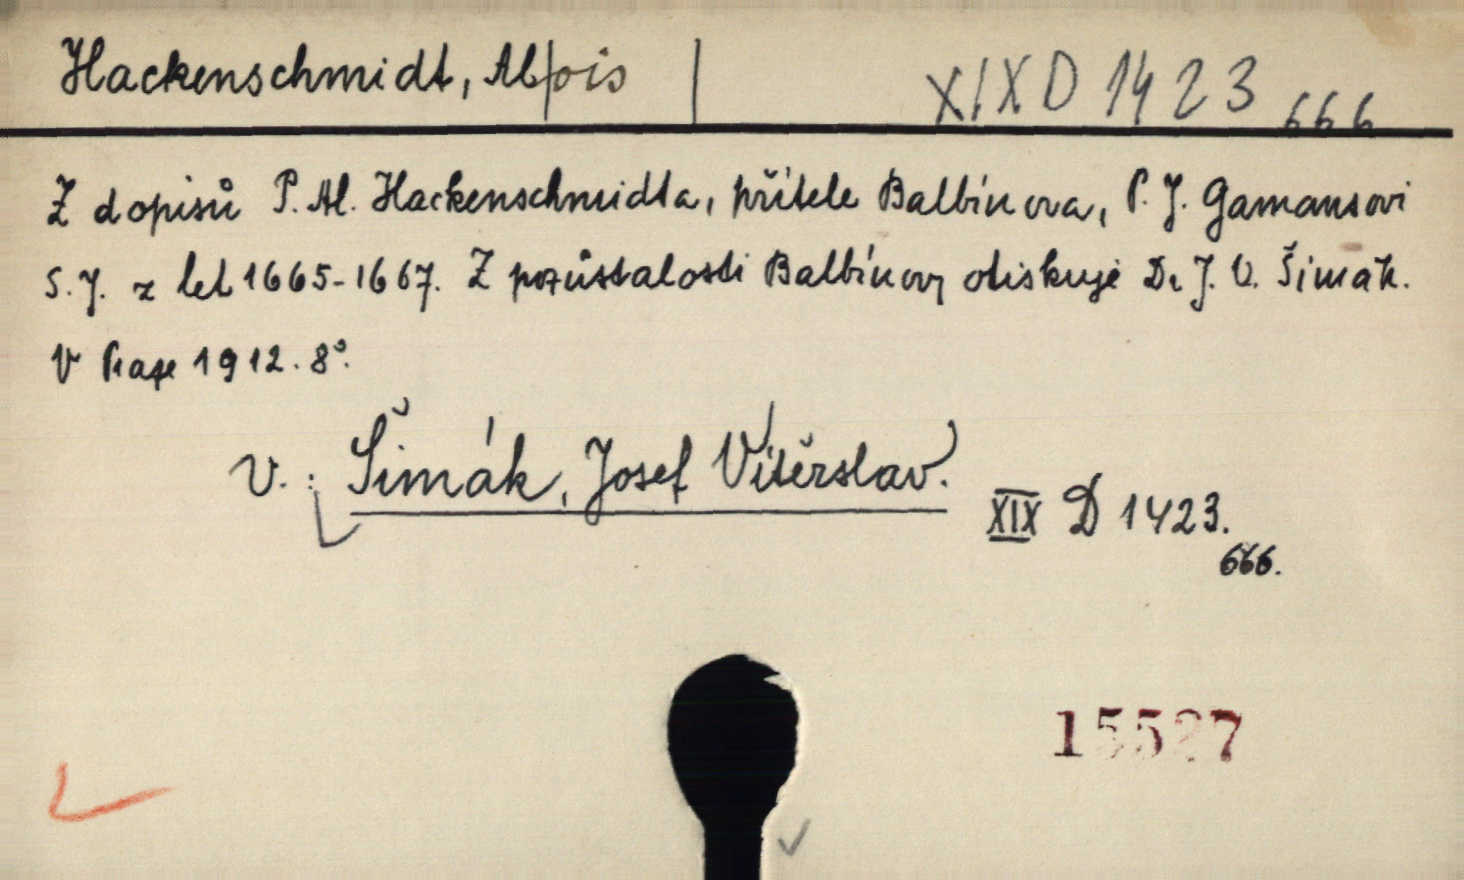 Hackenschmidt, Alois XIX D 1423 666
Z dopisů P. Al. Hackenschmidta, přítele Balbínova, P. J. Gamansovi
S. J. z let 1665-1667. Z pozůstalosti Balbínovy otiskuje Dr J. V. Šimák.
V Praze 1912. 8°.
V.: Šimák, Josef Vítěrslav.
XIX D 1423.
666.
15527